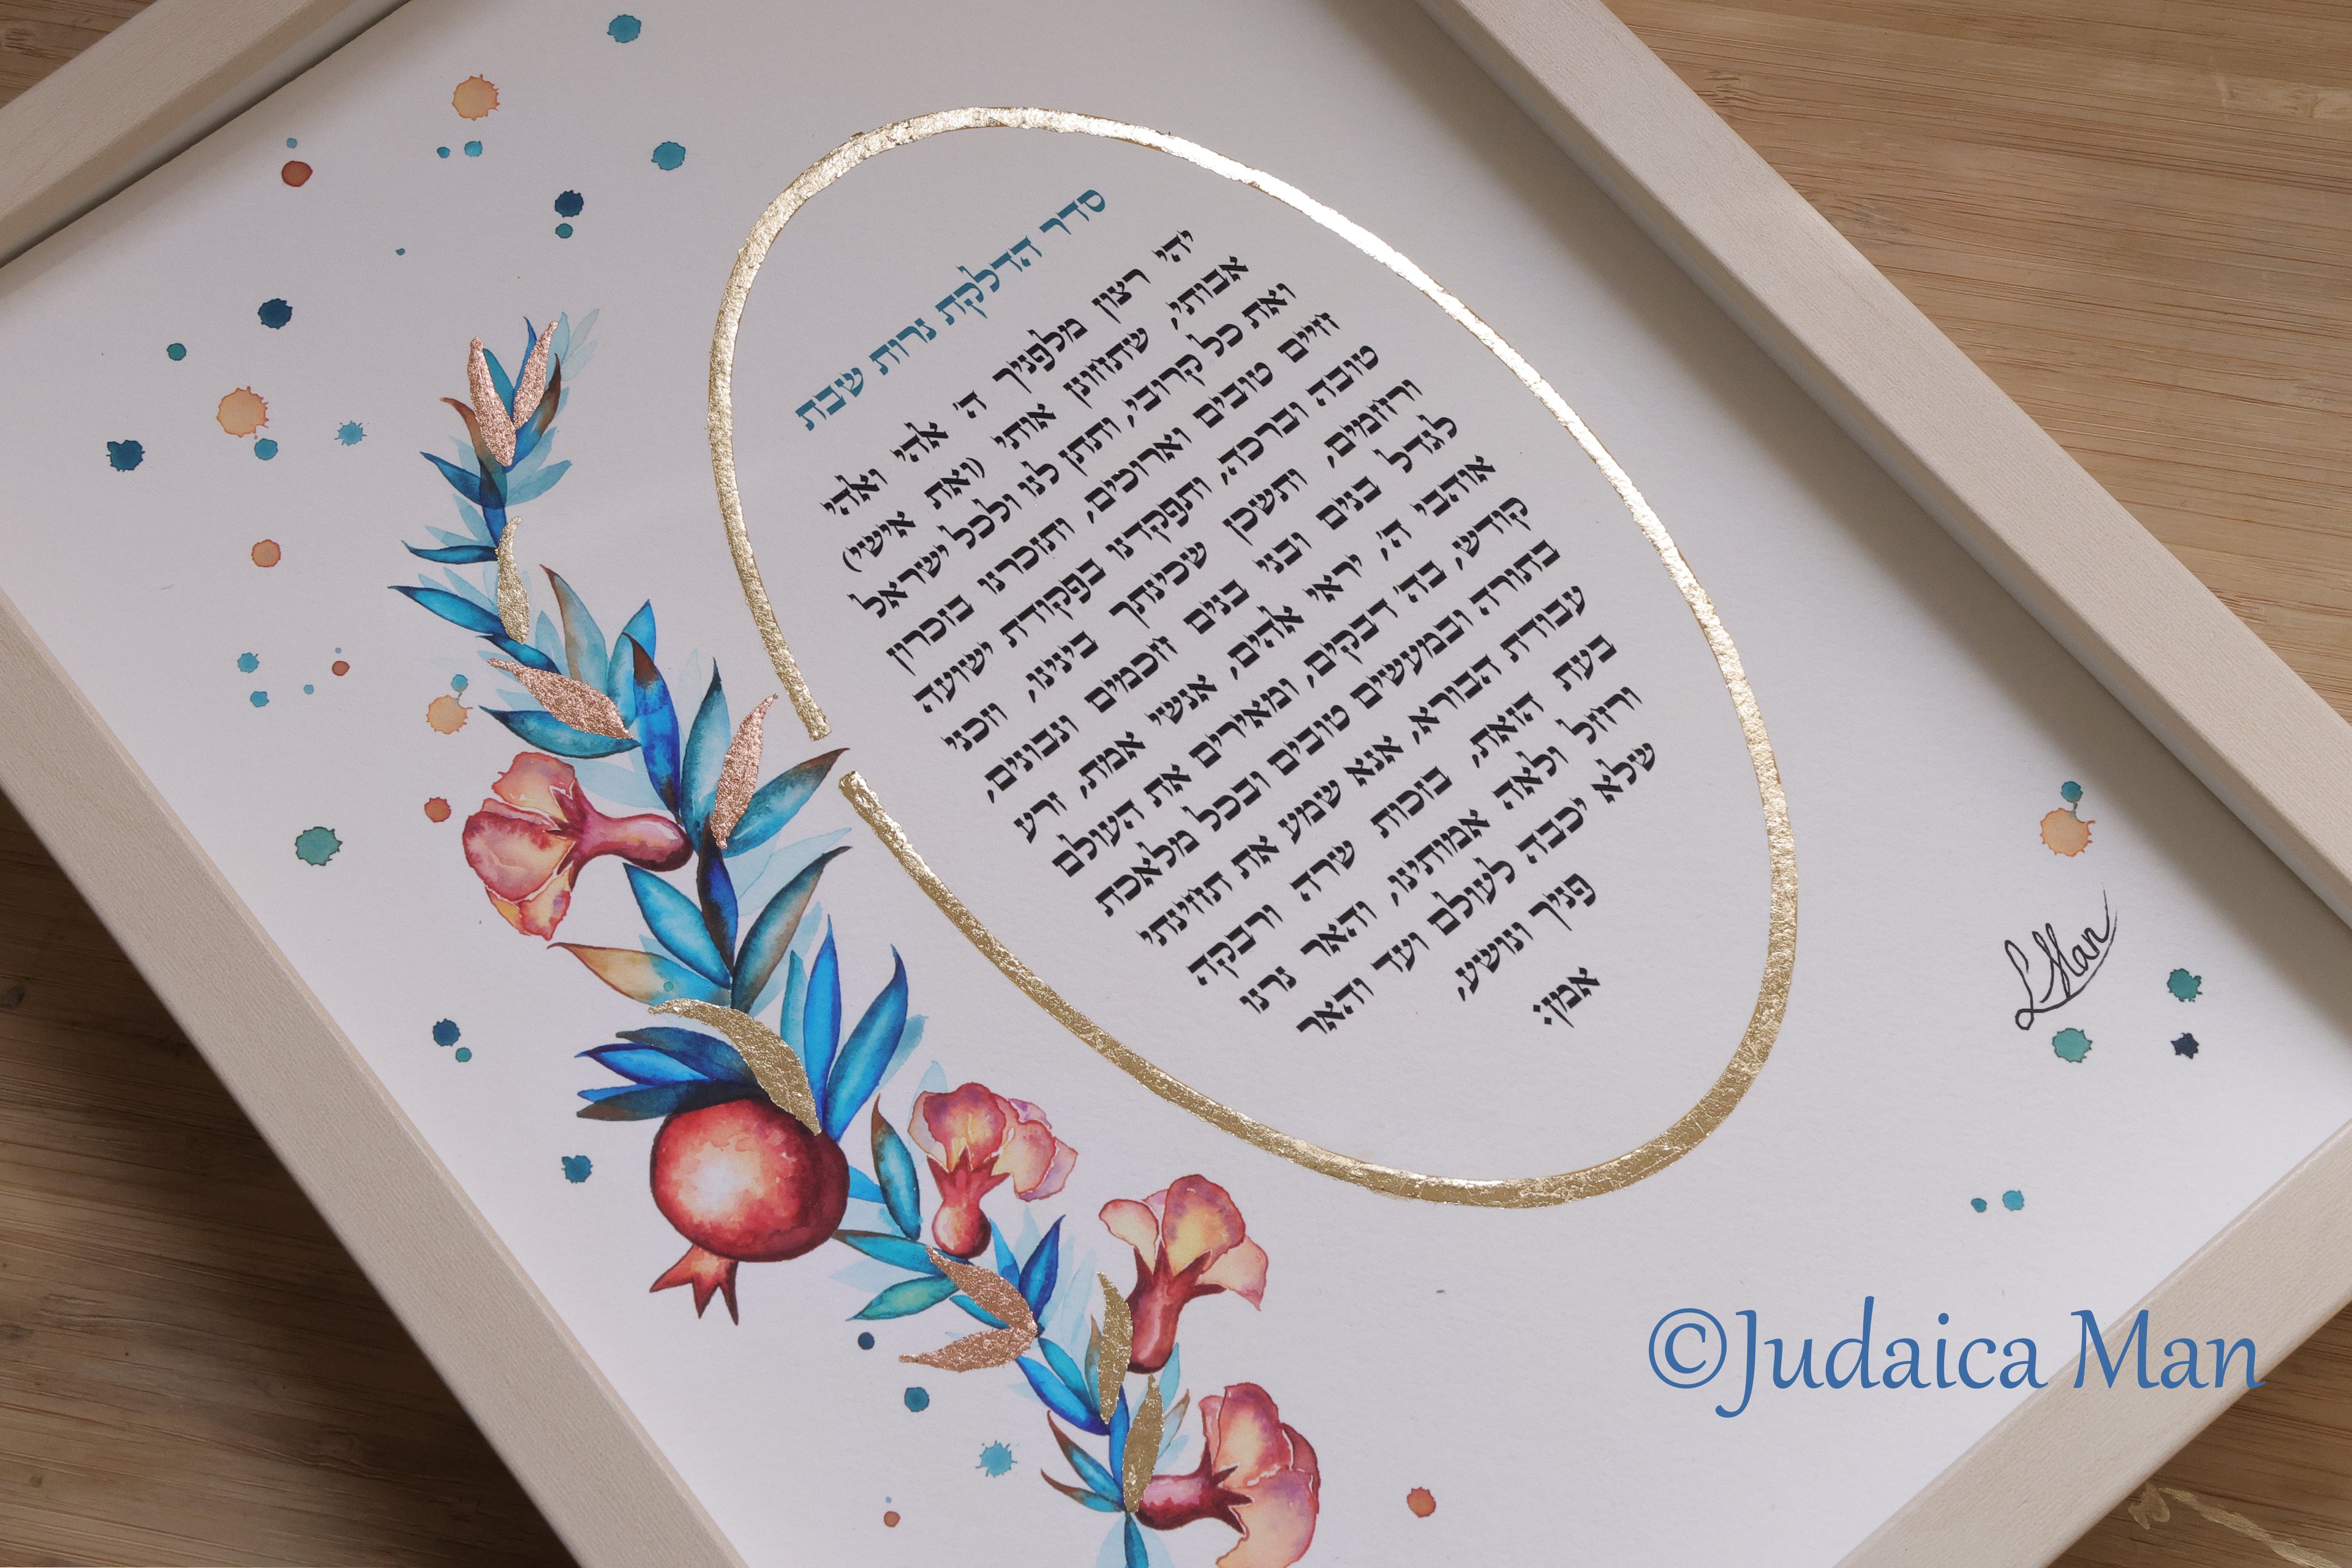 סדר הדלקת נרות שבת
יהי רצון מלפניך ה' אלהי ואלהי
אבותי, שתחונן אותי (ואת אישי)
ואת כל קרובי, ותתן לנו ולכל ישראל
חיים טובים וארוכים, ותזכרנו בזכרון
טובה וברכה, ותפקדנו בפקודת ישועה
ורחמים, ותשכן שכינתך בינינו, וזכני
לגדל בנים ובני בנים חכמים ונבונים,
אוהבי ה', יראי אלהים, אנשי אמת, זרע
קודש, בה' דבקים, ומאירים את העולם
בתורה ובמעשים טובים ובכל מלאכת
עבודת הבורא, אנא שמע את תחינתי
בעת הזאת, בזכות שרה ורבקה
ורחל ולאה אמותינו, והאר נרנו
שלא יכבה לעולם ועד והאר
פניך ונושע,
אמן:
L Man
©Judaica Man